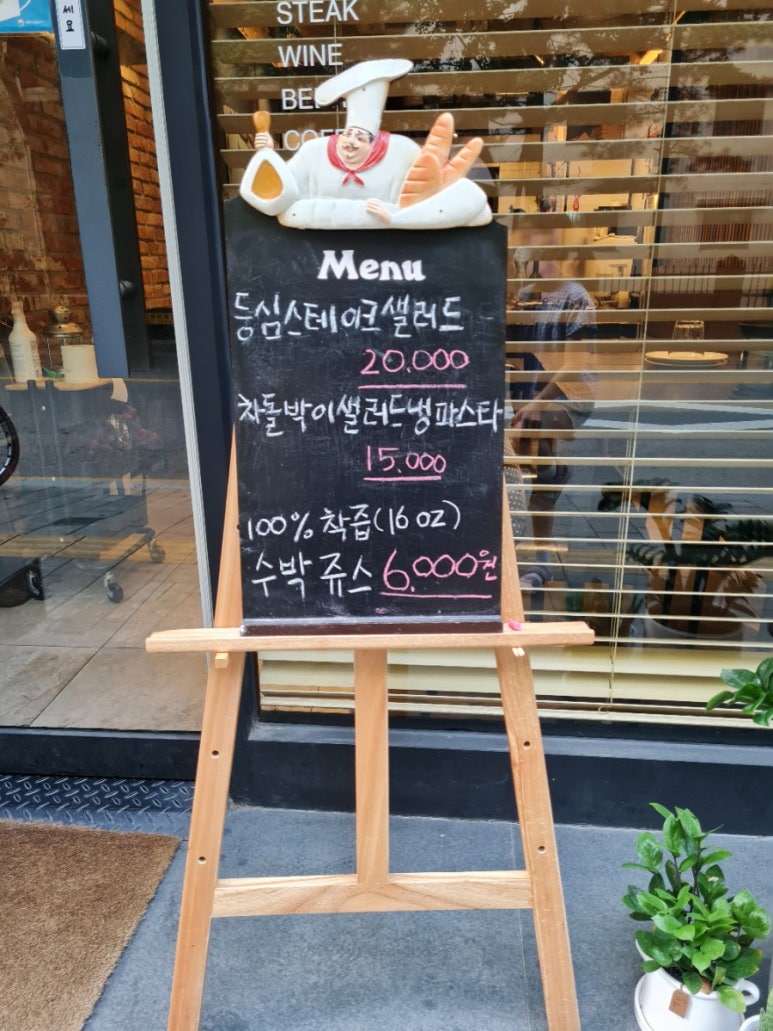 세요
STEAK
WINE
Menu
등심스테이크샐러드
20.000
차돌박이샐러드냉파스타
15.000
100% 착즙(16oz)
수박 쥬스 6.000원